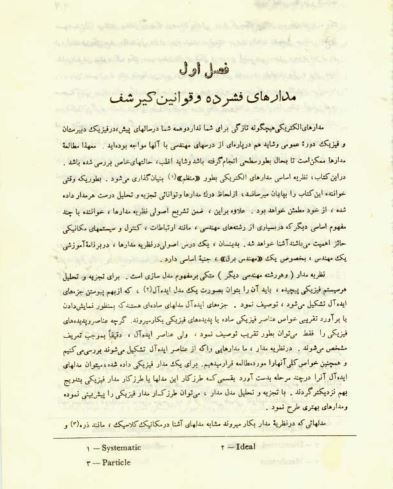 فصل اول
مدارهای فشرده وقوانین کیرشف
مدارهای الکتریکی هیچگونه تازگی برای شما ندارد و همه شما درسالهای پیش درفیزیک دبیرستان
و فیزیک دورهٔ عمومی وشاید هم درپاره‌ای از درسهای مهندسی با آنها مواجه بوده‌اید . معهذا مطالعهٔ
مدارها ممکن است تا بحال بطور سطحی انجام گرفته باشد وشاید اغلب، حالتهای خاص بررسی شده باشد .
دراین کتاب، نظریه اساسی مدارهای الکتریکی بطور «منظم»(۱) بنیان‌گذاری می‌شود . بطوریکه وقتی
خواننده این کتاب را بپایان میرساند، ازلحاظ درک مدارها وتوانائی تجزیه و تحلیل درست هرمدار داده
شده ، از خود مطمئن خواهد بود . علاوه براین ، ضمن تشریح اصولی نظریه مدارها ، خواننده با چند
مفهوم اساسی دیگر که دربسیاری از رشته‌های مهندسی ، مانند ارتباطات ، کنترل و سیستمهای مکانیکی
حائز اهمیت می‌باشند آشنا خواهد شد . بدینسان ، یک درس اصولی درنظریه مدارها ، در برنامهٔ آموزشی
یک مهندس ، بخصوص یک «مهندس برق» ، جنبهٔ اساسی دارد .
نظریه مدار ( وهررشته مهندسی دیگر ) متکی برمفهوم مدل سازی است . برای تجزیه و تحلیل
هرسیستم فیزیکی پیچیده ، باید آن را بتوان بصورت یک مدل ایده‌آل(۲) ، که ازبهم پیوستن جزءهای
ایده‌آل تشکیل می‌شود ، توصیف نمود . جزءهای ایده‌آل مدلهای ساده‌ای هستند که بمنظور نمایش‌دادن
یا برآورد تقریبی خواص عناصر فیزیکی ساده یا پدیده‌های فیزیکی بکار میروند . گرچه عناصر و پدیده‌های
فیزیکی را فقط می‌توان بطور تقریب توصیف نمود ، ولی عناصر ایده‌آل ، دقیقاً بموجب تعریف
مشخص می‌شوند . درنظریه مدار ، ما مدارهایی راکه از عناصر ایده‌آل تشکیل می‌شوند بررسی می کنیم
و همچنین خواص کلی آنها را مورد مطالعه قرار میدهیم. برای یک مدار فیزیکی داده شده، میتوان مدلهای
ایده‌آل آنرا درچند مرحله بدست آورد بقسمی که طرز کار این مدلها با طرز کار مدار فیزیکی بتدریج
بهم نزدیکتر گردند . با تجزیه و تحلیل مدل مدار ، می‌توان طرز کار مدار فیزیکی را پیش‌بینی نموده
ومدارهای بهتری طرح نمود .
مدلهائی که درنظریهٔ مدار بکار میروند مشابه مدلهای آشنا درمکانیک کلاسیک ، مانند ذره(۳) و
۱ — Systematic ۲ — Ideal
۳ — Particle